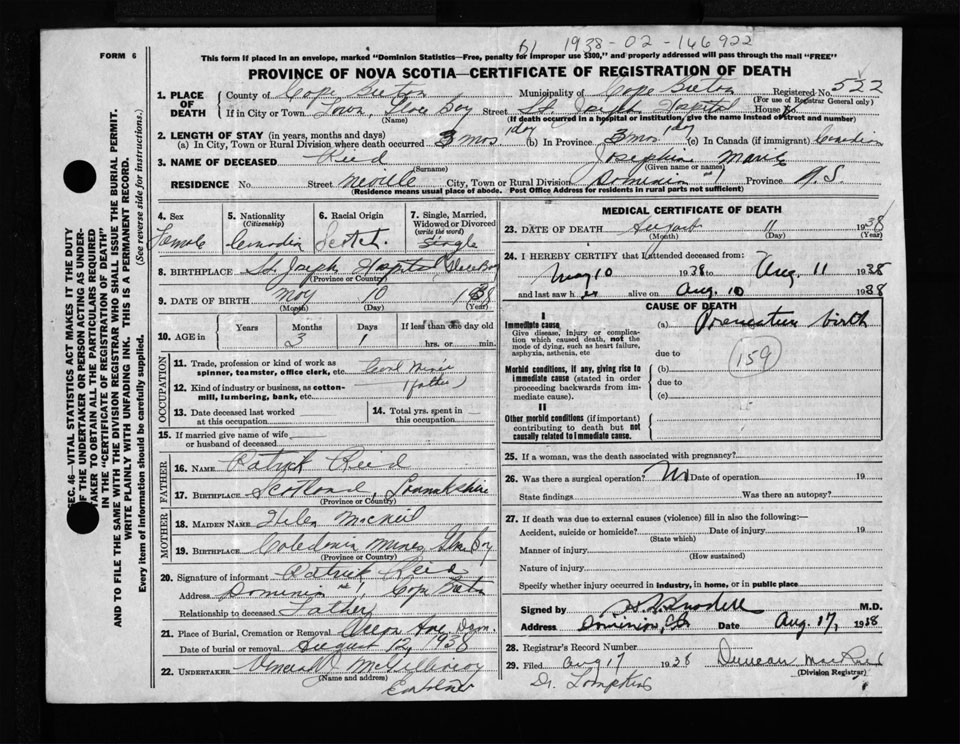 51 1938-02-146922
FORM 6
This form if placed in an envelope, marked "Dominion Statistics—Free, penalty for improper use $300," and properly addressed will pass through the mail "FREE"
PROVINCE OF NOVA SCOTIA—CERTIFICATE OF REGISTRATION OF DEATH
1. PLACE OF DEATH
County of Cape Breton Municipality of Cape Breton Registered No. 522
(For use of Registrar General only)
If in City or Town Town, Glace Bay Street St. Joseph Hospital House No.
(Name) (If death occurred in a hospital or institution, give the name instead of street and number)
2. LENGTH OF STAY (in years, months and days)
(a) In City, Town or Rural Division where death occurred 3 mos 1 day (b) In Province 3 mos 1 day (c) In Canada (if immigrant) Canadian
3. NAME OF DECEASED Reid Josephine Marie
(Surname) (Given name or names)
RESIDENCE No. Street Neville City, Town or Rural Division Dominion #1 Province N.S
(Residence means usual place of abode. Post Office Address for residents in rural parts not sufficient)
4. Sex Female
5. Nationality (Citizenship) Canadian
6. Racial Origin Scotch
7. Single, Married, Widowed or Divorced (write the word) Single
8. BIRTHPLACE St. Joseph Hospital Glace Bay
(Province or Country)
9. DATE OF BIRTH May 10 1938
(Month) (Day) (Year)
10. AGE in Years Months 3 Days 1 If less than one day old hrs. or min.
OCCUPATION
11. Trade, profession or kind of work as spinner, teamster, office clerk, etc. Coal Miner
12. Kind of industry or business, as cotton-mill, lumbering, bank, etc. (father)
13. Date deceased last worked at this occupation
14. Total yrs. spent in this occupation
15. If married give name of wife or husband of deceased
FATHER
16. NAME Patrick Reid
17. BIRTHPLACE Scotland, Lanarkshire
(Province or Country)
MOTHER
18. MAIDEN NAME Helen MacNeil
19. BIRTHPLACE Caledonia Mines Glace Bay
(Province or Country)
20. Signature of informant Patrick Reid
Address Dominion #1, Cape Breton
Relationship to deceased Father
21. Place of Burial, Cremation or Removal Dom.
Date of burial or removal August 12, 1938
22. UNDERTAKER Vincent McGillivray
(Name and address)
Embalmer
MEDICAL CERTIFICATE OF DEATH
23. DATE OF DEATH August 11 1938
(Month) (Day) (Year)
24. I HEREBY CERTIFY that I attended deceased from:
May 10 1938 to Aug. 11 1938
and last saw her alive on Aug. 10 1938
CAUSE OF DEATH
I
Immediate cause (a) Premature birth
Give disease, injury or complication which caused death, not the mode of dying, such as heart failure, asphyxia, asthenia, etc
due to
159
Morbid conditions, if any, giving rise to immediate cause (stated in order proceeding backwards from immediate cause).
(b)
due to
(c)
II
Other morbid conditions (if important) contributing to death but not causally related to immediate cause.
25. If a woman, was the death associated with pregnancy?
26. Was there a surgical operation? No Date of operation 19
State findings Was there an autopsy?
27. If death was due to external causes (violence) fill in also the following:—
Accident, suicide or homicide? Date of injury 19
(State which)
Manner of injury
(How sustained)
Nature of injury
Specify whether injury occurred in industry, in home, or in public place
Signed by M.D.
Address Dominion, C.B. Date Aug. 17, 1938
28. Registrar's Record Number
29. Filed Aug 17 1938 Duncan
(Division Registrar)
Dr. Tompkins
SEC. 46—VITAL STATISTICS ACT MAKES IT THE DUTY
OF THE UNDERTAKER OR PERSON ACTING AS UNDER-
TAKER TO OBTAIN ALL THE PARTICULARS REQUIRED
IN THE "CERTIFICATE OF REGISTRATION OF DEATH"
AND TO FILE THE SAME WITH THE DIVISION REGISTRAR WHO SHALL ISSUE THE BURIAL PERMIT.
WRITE PLAINLY WITH UNFADING INK. THIS IS A PERMANENT RECORD.
Every item of information should be carefully supplied. (See reverse side for instructions.)